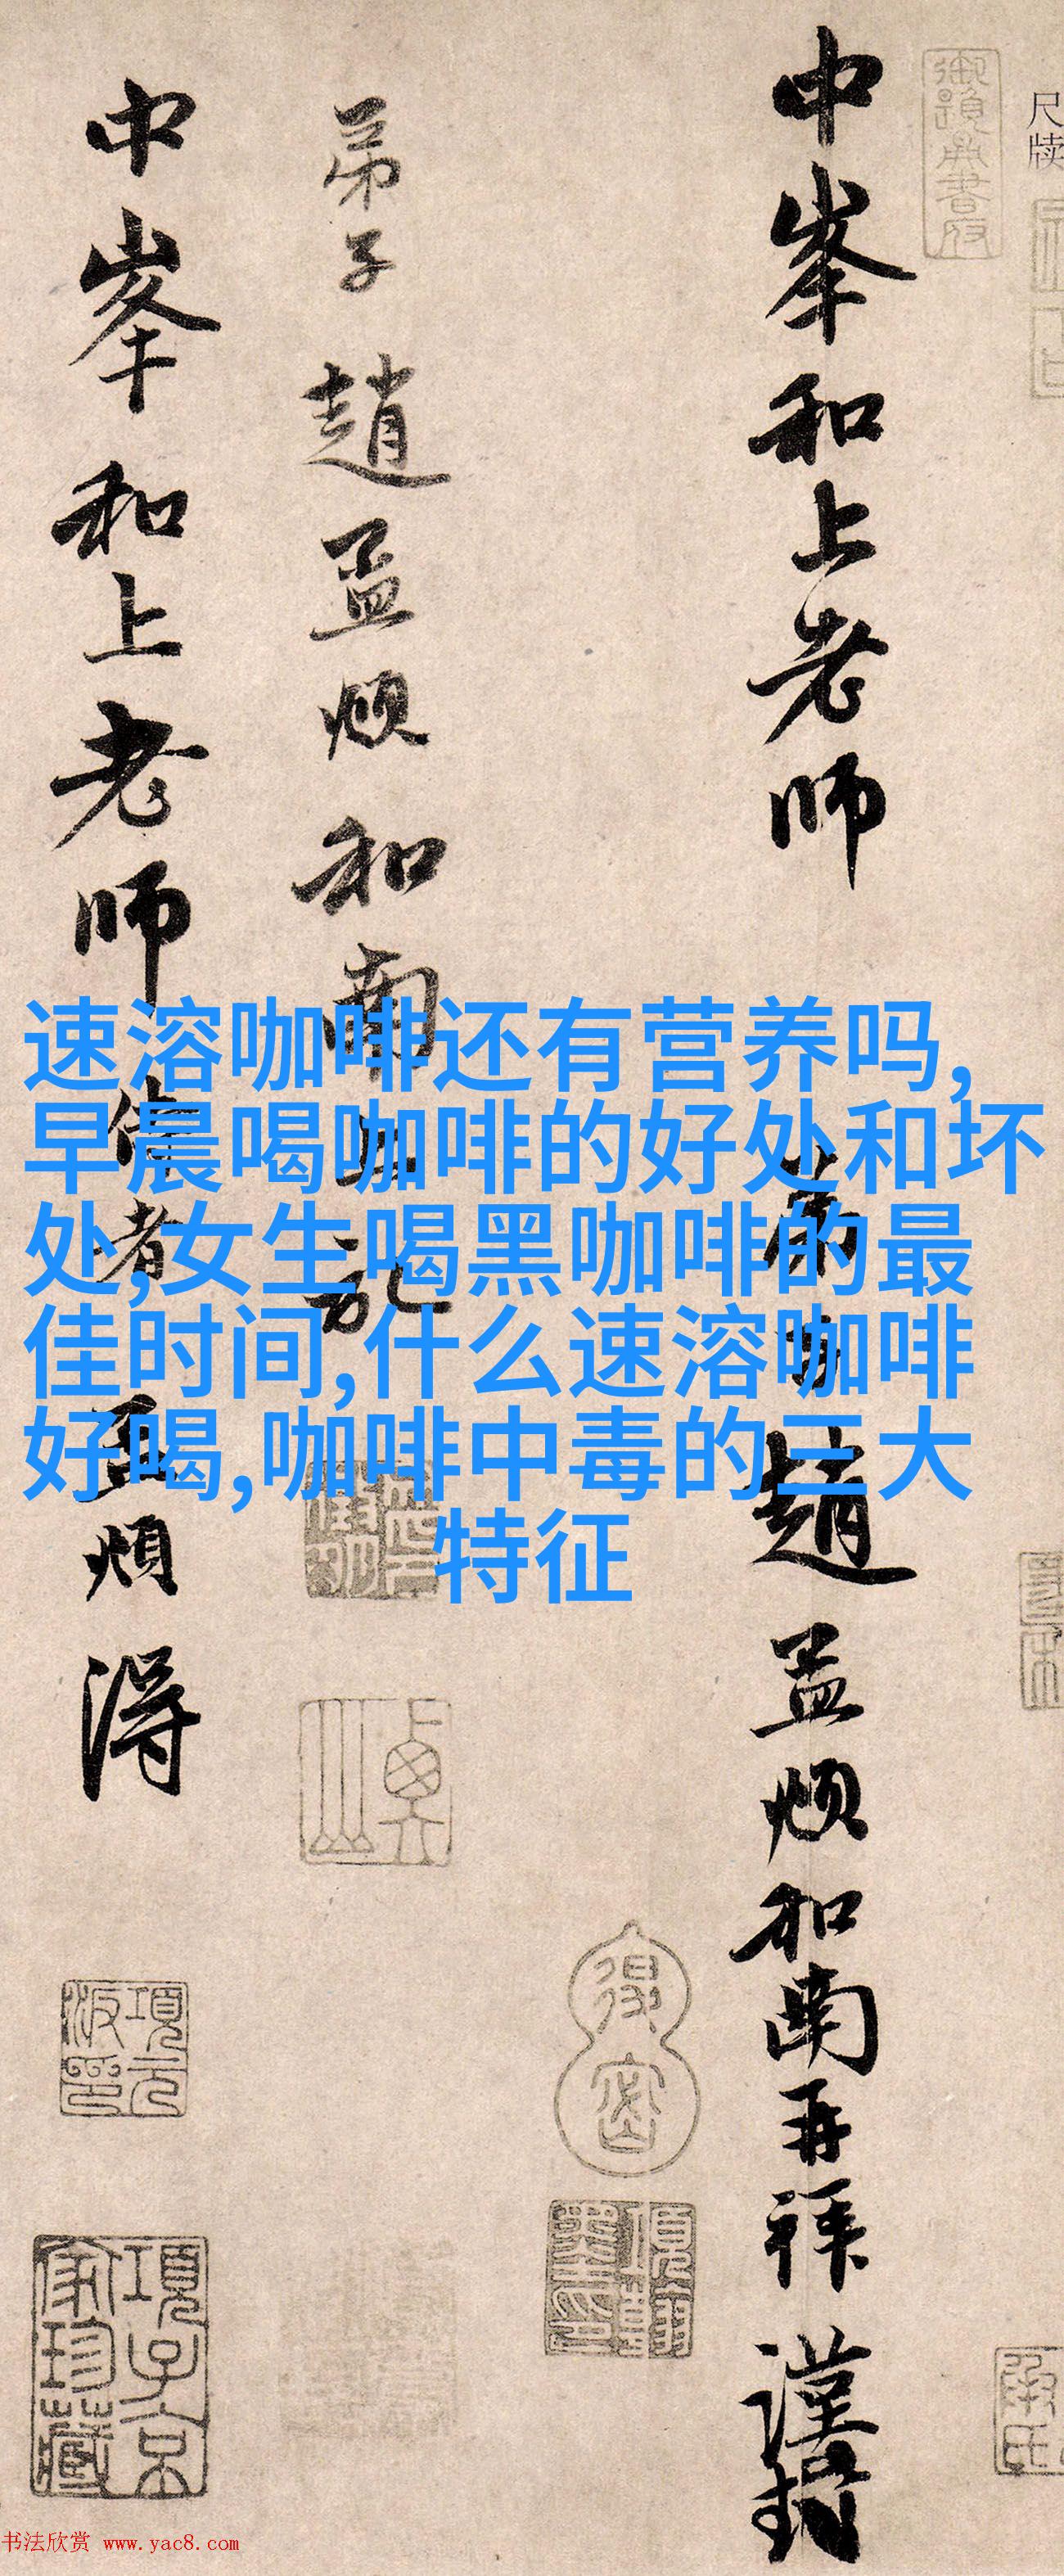 尺牍
中峯和上老师
弟子趙孟頫和南再拜謹封
弟子趙孟頫和南
中峯和上老师
侍者
孟頫得
速溶咖啡还有营养吗,
早晨喝咖啡的好处和坏
处,女生喝黑咖啡的最
佳时间,什么速溶咖啡
好喝,咖啡中毒的三大
特征
項子京
家珍藏
书法欣赏 www.yac8.com